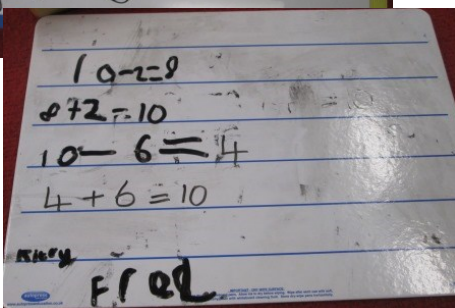 10-2=8
8+2=10
10-6=4
4+6=10
Fred